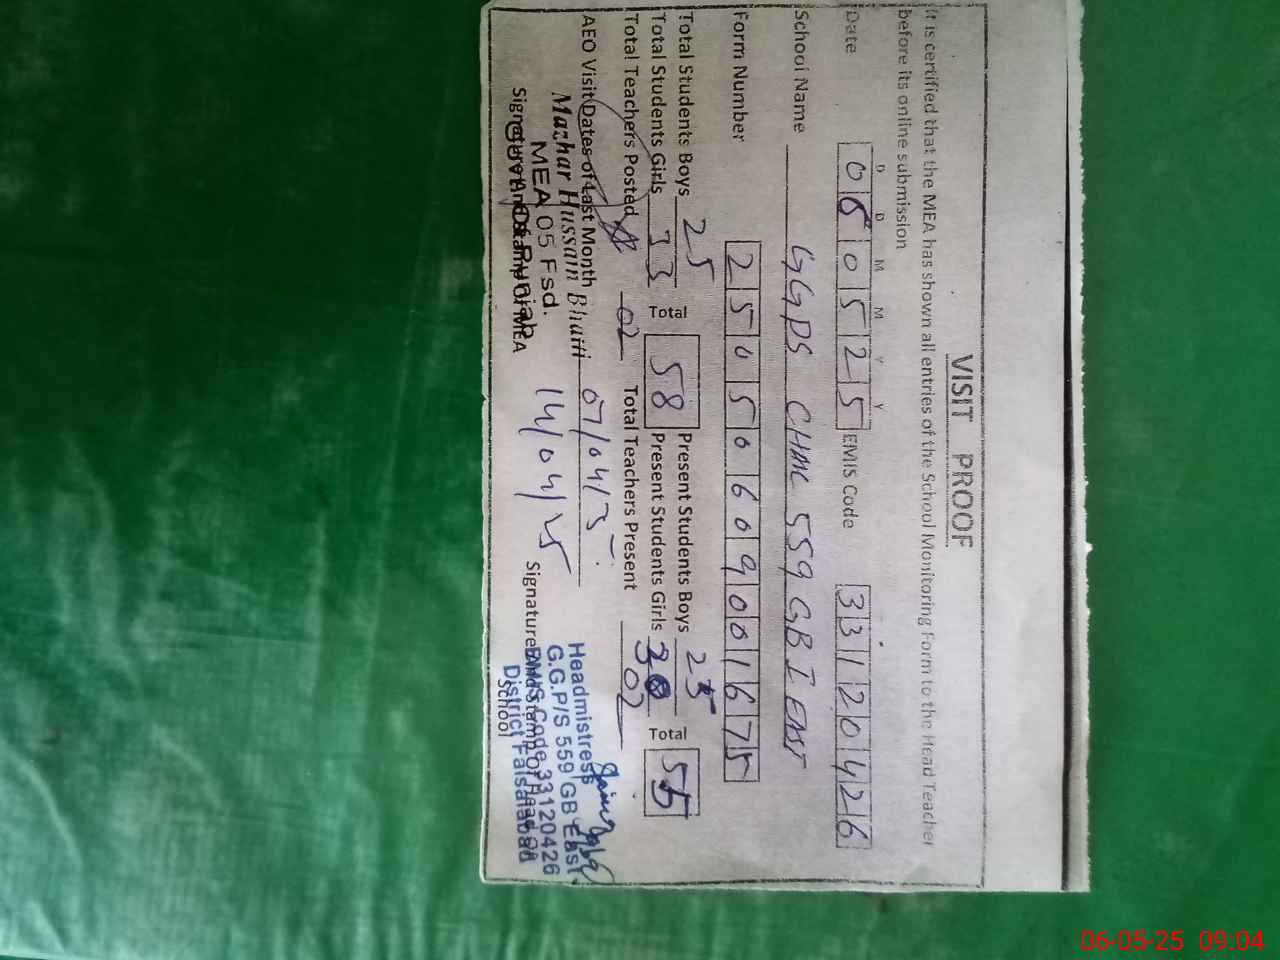 VISIT PROOF
It is certified that the MEA has shown all entries of the School Monitoring Form to the Head Teacher
before its online submission
D D M M Y Y
Date 06 05 25 EMIS Code 33120426
School Name GGPS CHAK 559 GB I EAST
Form Number 25050609001675
Total Students Boys 25 Present Students Boys 25
Total Students Girls 33 Total 58 Present Students Girls 30 Total 55
Total Teachers Posted 02 Total Teachers Present 02
AEO Visit Dates of Last Month 07/04/5
Mazhar Hussain Bhatti
MEA 05 Fsd.
Govt. Of Punjab
14/04/25
Signature And Stamp Of MEA
Signature And Stamp Of Head Of
School
Headmistress
G.G.P/S 559 GB East
EMIS Code 33120426
District Faisalabad
06-05-25 09:04